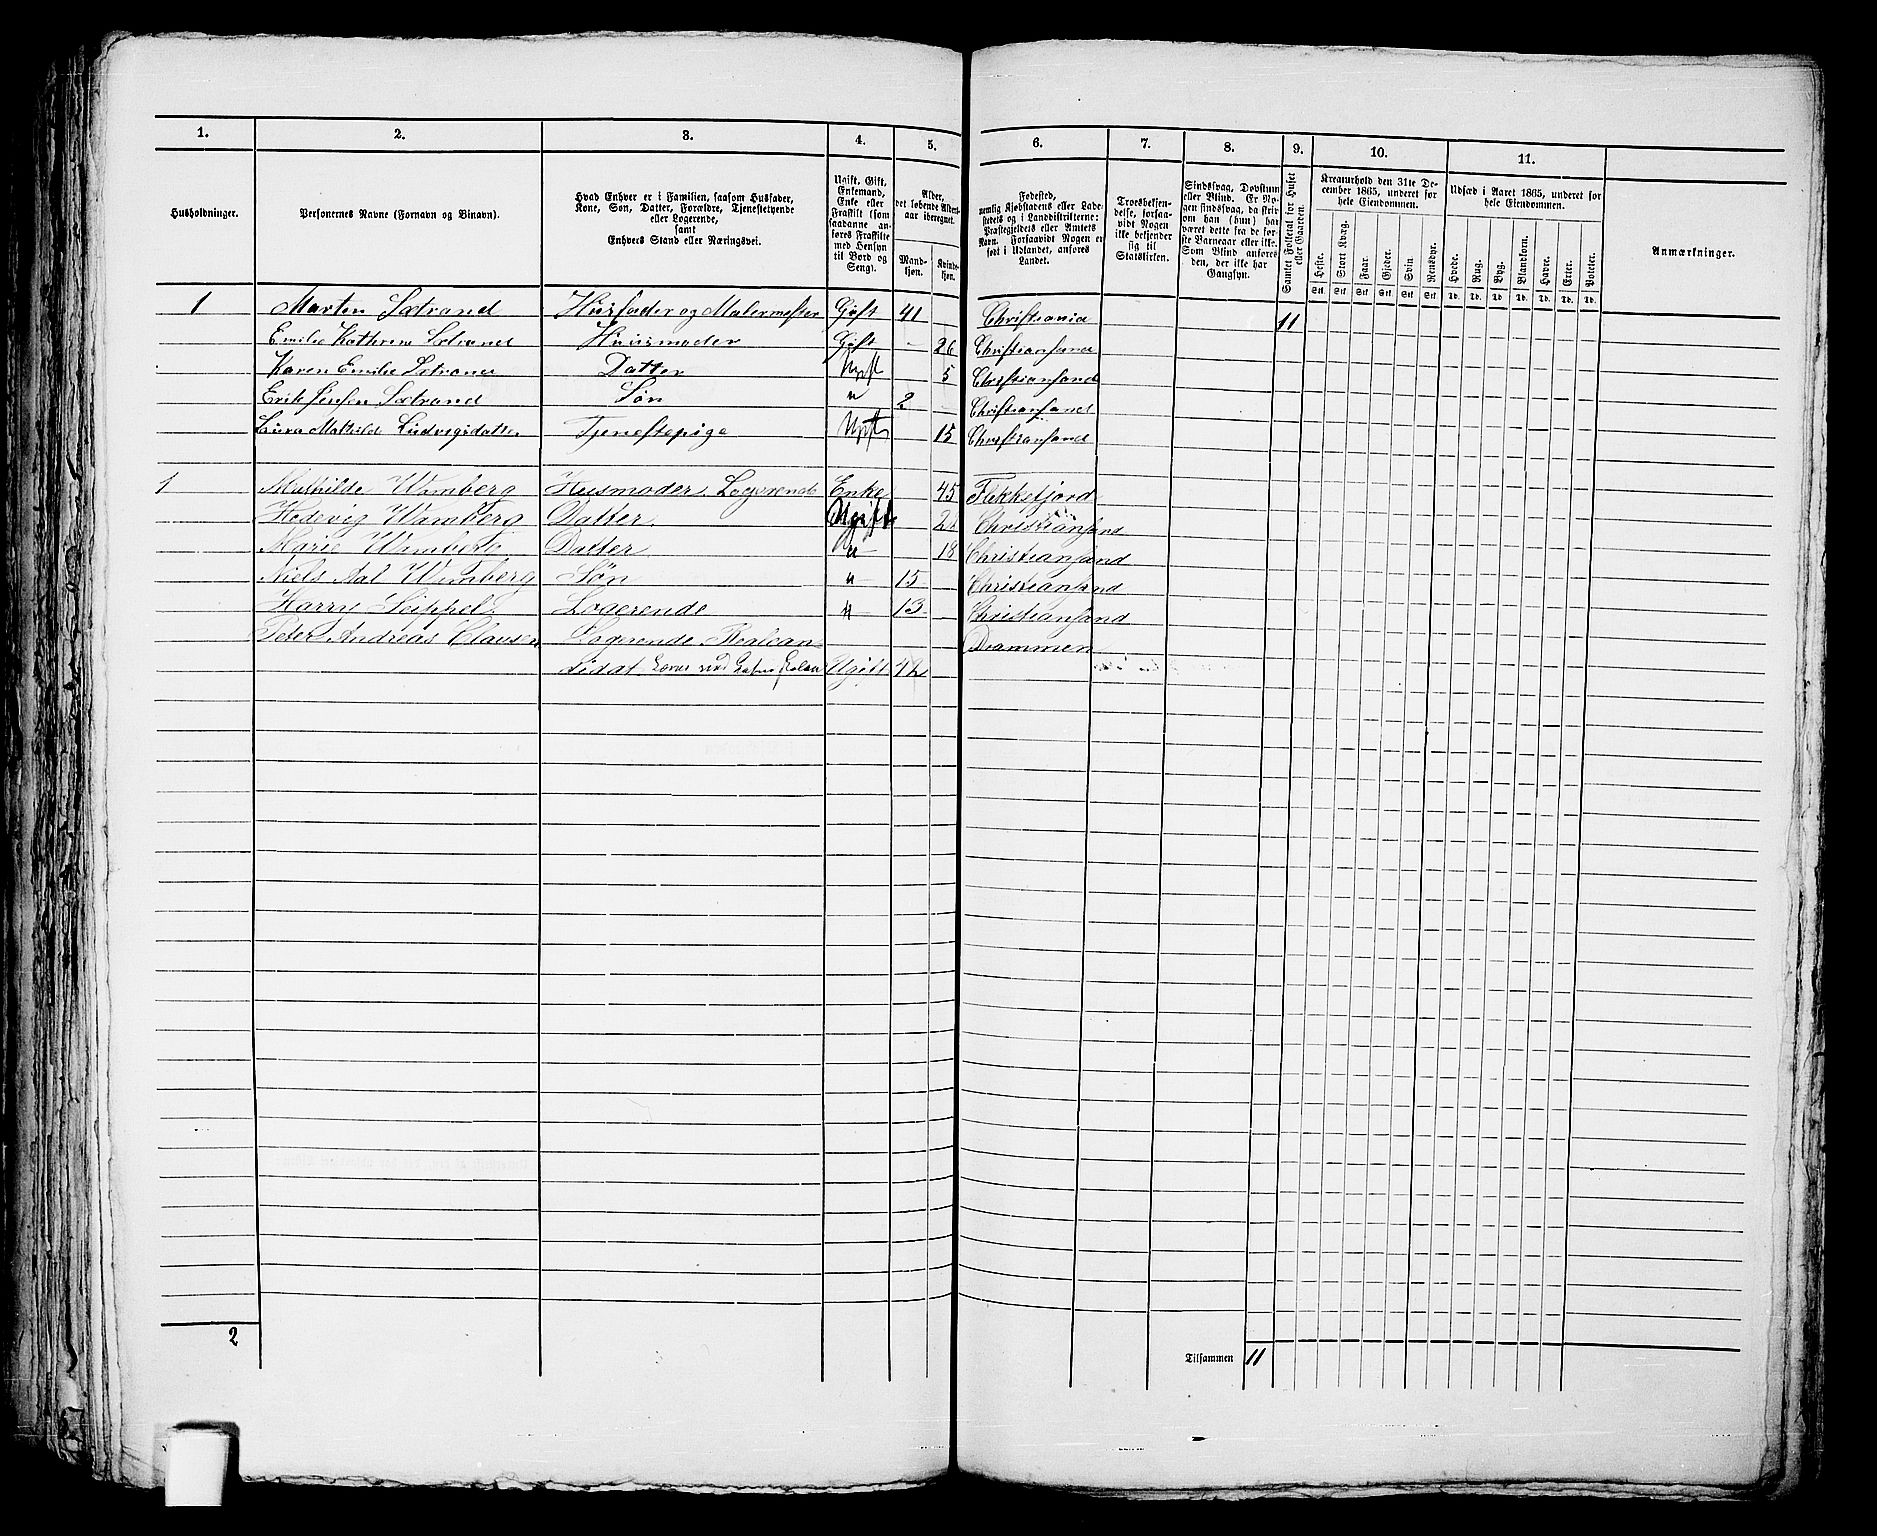 1. 2. 3. 4. 5. 6. 7. 8. 9. 10. 11.
Husholdninger.
Personernes Navne (Fornavn og Binavn).
Hvad Enhver er i Familien, saasom Husfader,
Kone, Søn, Datter, Forældre, Tjenestetyende
eller Logerende,
samt
Enhvers Stand eller Næringsvei.
Ugift, Gift,
Enkemand,
Enke eller
Fraskilt (som
saadanne an-
føres Fraskilte
med Hensyn
til Bord og
Seng).
Alder,
det løbende Alders-
aar iberegnet.
Mand-
kjøn.
Kvinde-
kjøn.
Fødested,
nemlig Kjøbstadens eller Lade-
stedets og i Landdistrikterne:
Præstegjeldets eller Amtets
Navn. Forsaavidt Nogen er
født i Udlandet, anføres
Landet.
Troesbekjen-
delse, forsaa-
vidt Nogen
ikke bekjender
sig til
Statskirken.
Sindssvag, Døvstum
eller Blind. Er No-
gen sindssvag, da skri-
ves om han (hun) har
været dette fra de før-
ste Barneaar eller ikke.
Som Blind anføres
den, der ikke har
Gangsyn.
Samlet Folketal for Huset
eller Gaarden.
Kreaturhold den 31te De-
cember 1865, underet for
hele Eiendommen.
Heste. Stort Kvæg. Faar. Gjeder. Svin. Rensdyr.
Stk. Stk. Stk. Stk. Stk. Stk.
Udsæd i Aaret 1865, underet for
hele Eiendommen.
Hvede. Rug. Byg. Blandkorn. Havre. Erter. Poteter.
Td. Td. Td. Td. Td. Td. Td.
Anmærkninger.
1 Morten Sætrand Husfader og Malermester Gift 41 Christiania 11
Emilie Kathrine Sætrand Huusmoder Gift - 26 Christiansand
Karen Emilie Sætrand Datter Ugift 5 Christiansand
Erik Jensen Sætrand Søn " 2 Christiansand
Laura Mathilde Ludvigsdatter Tjenestepige Ugift 15 Christiansand
1 Mathilde Wimberg Husmoder Logerende Enke 45 Flekkefjord
Hedevig Wimberg Datter Ugift Christiansand
Marie Wimberg Datter " 18 Christiansand
Niels Aal Wimberg Søn " 15 Christiansand
Harry Seippel Logerende " 13 Christiansand
Peter Andreas Clausen Logerende Realcan- Drammen
didat Ugift
2
Tilsammen 11